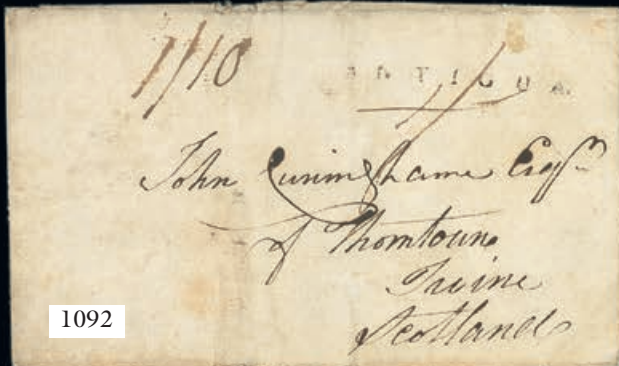 1/10
ANTIGUA
John Cuninghame Esqr
of Thorntoun
Irvine
Scotland
1092